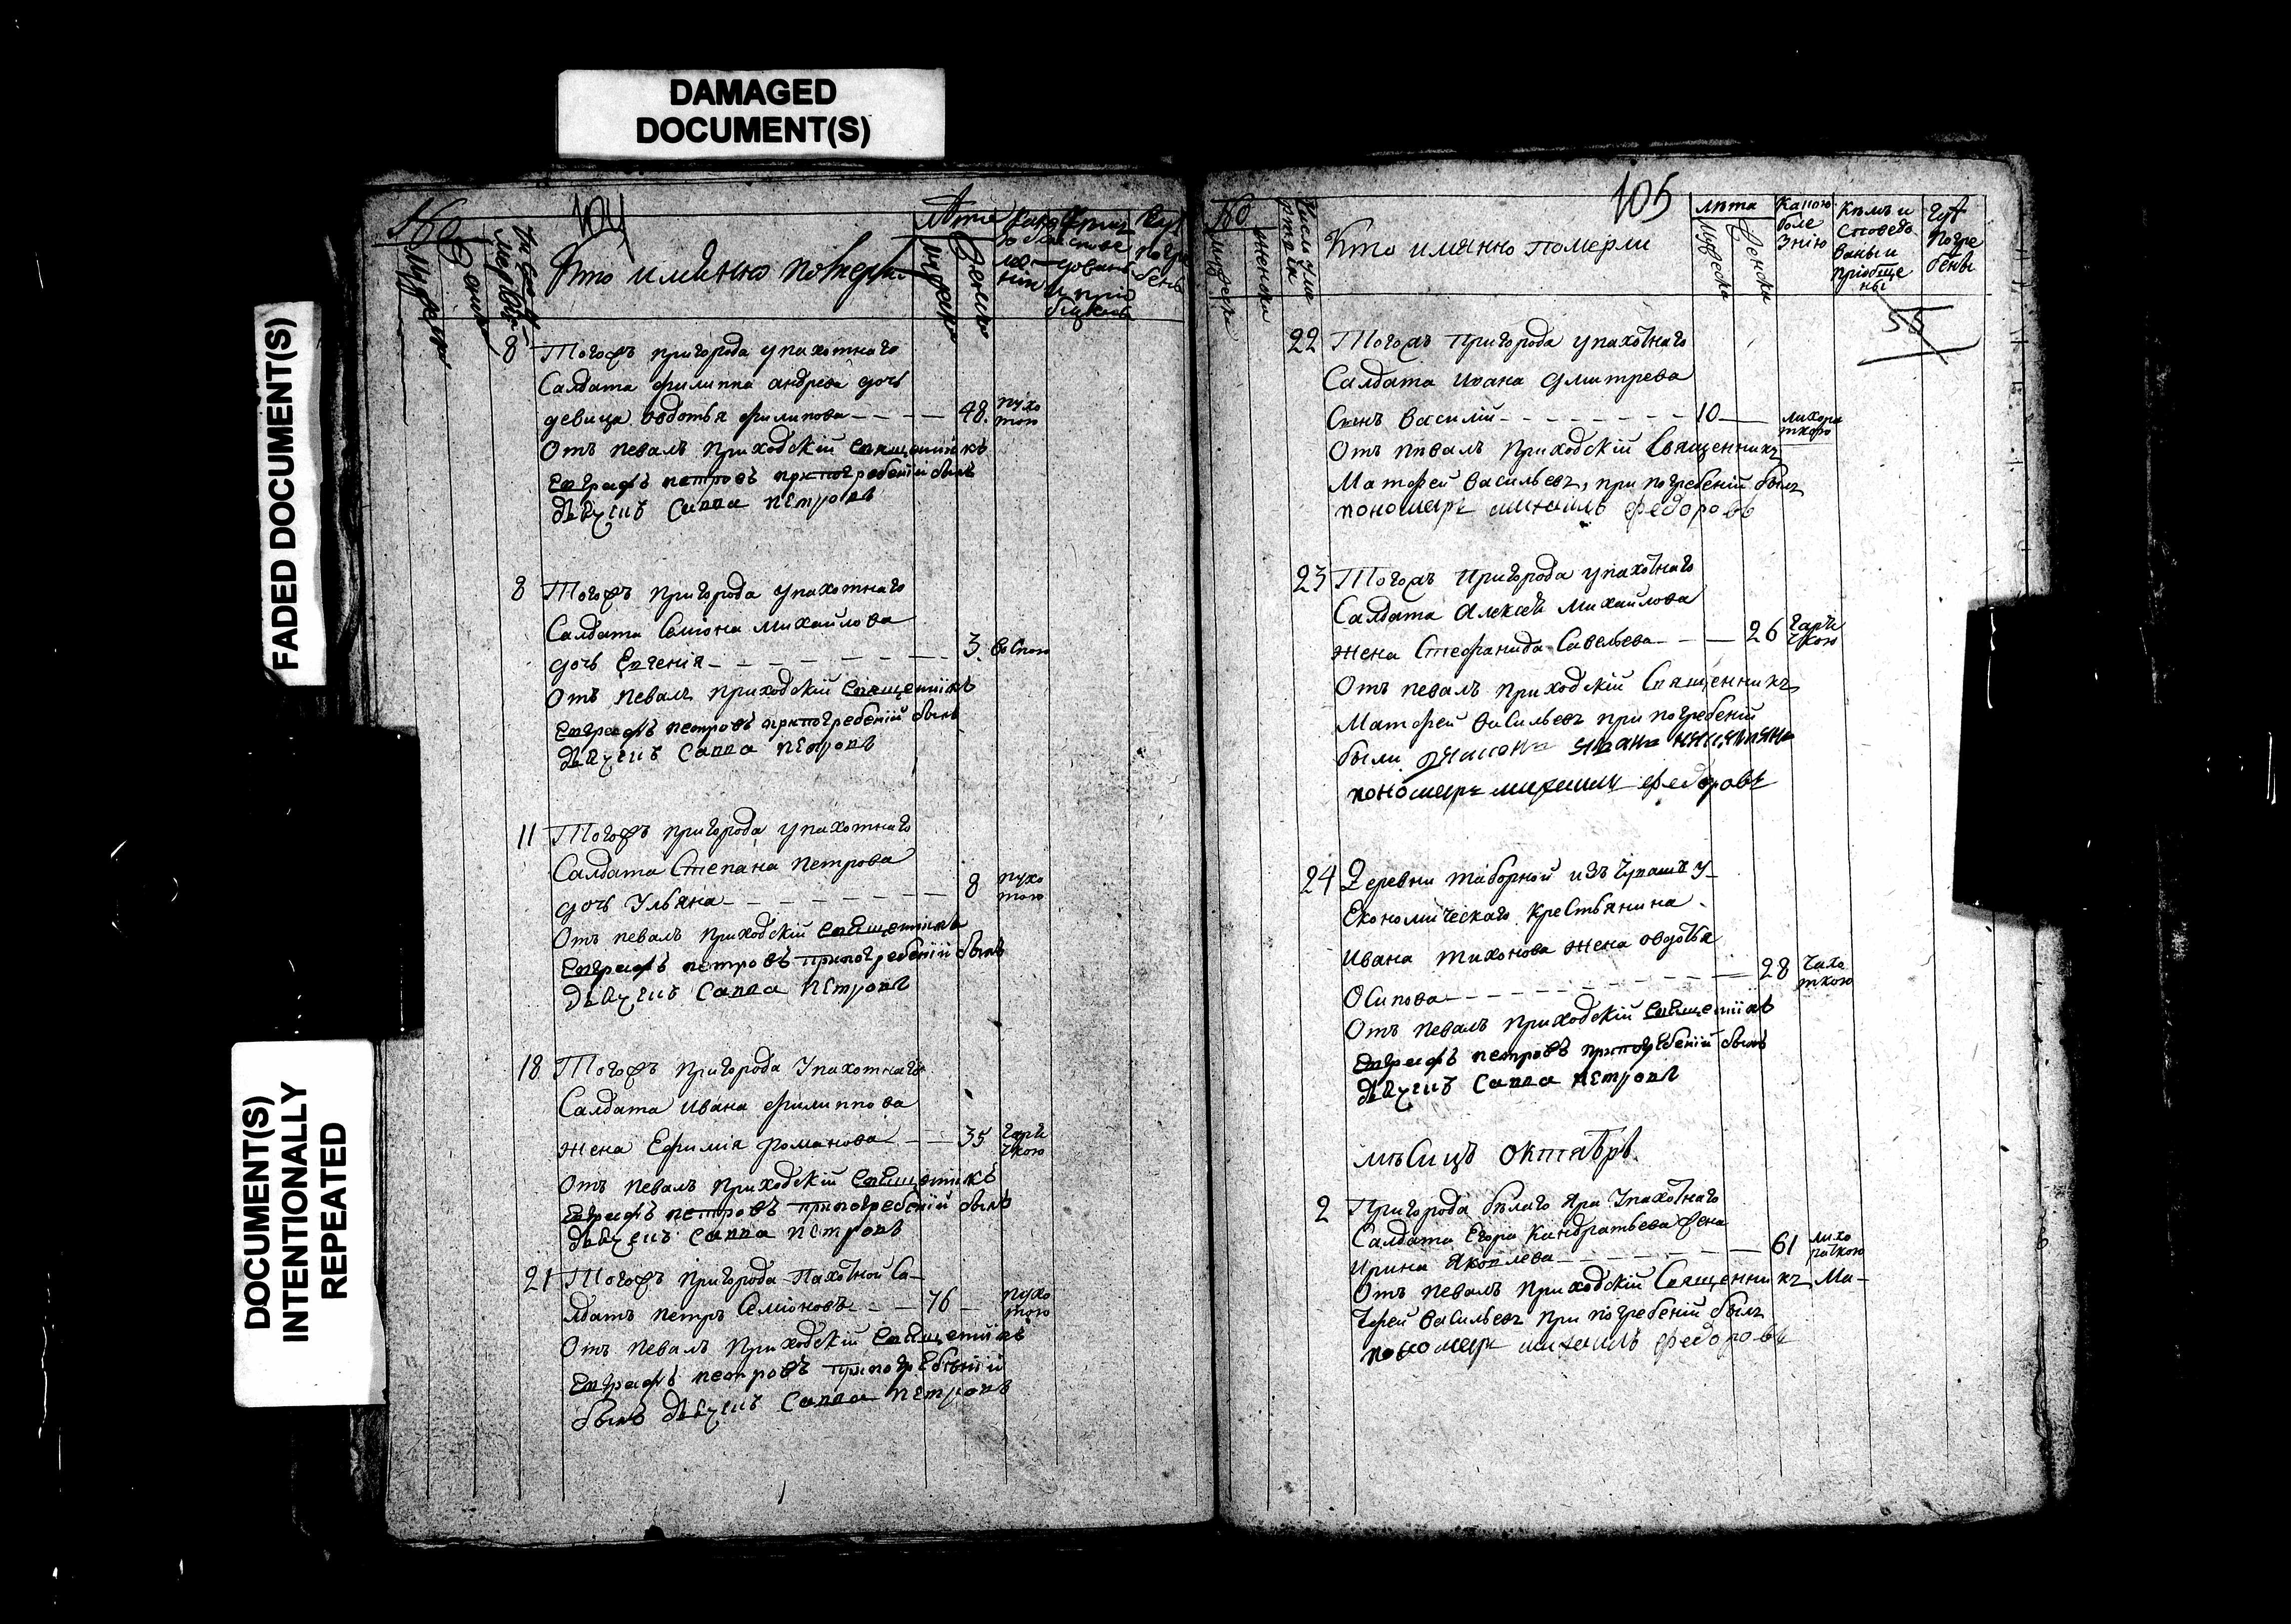 DAMAGED
DOCUMENT(S)
FADED DOCUMENT(S)
DOCUMENT(S)
INTENTIONALLY
REPEATED
104
Кто имянно померли
8 Тогожъ пригорода упахотнаго
Салдата филиппа андреева дочь
девица овдотья филипова 48. пухо
тою
Отъ певалъ приходскій священникъ
Евграфъ петровъ припогребеніи былъ
дьячекъ Савва петровъ
8 Тогожъ пригорода упахотнаго
Салдата Семіона Михаилова
дочь Евгенія 3. воспою
Отъ певалъ приходскій священникъ
Евграфъ петровъ припогребеніи былъ
дьячекъ Савва петровъ
11 Тогожъ пригорода упахотнаго
Салдата Степана петрова
дочь Ульяна 8 пухо
тою
Отъ певалъ приходскій священникъ
Евграфъ петровъ припогребеніи былъ
дьячекъ Савва петровъ
18 Тогожъ пригорода Упахотнаго
Салдата ивана филиппова
жена Ефимія романова 35 горя
чкою
Отъ певалъ приходскій священникъ
Евграфъ петровъ припогребеніи былъ
дьячекъ Савва петровъ
21 Тогожъ пригорода Пахотной Са-
лдатъ петръ Семіоновъ 76 пухо
тою
Отъ певалъ приходскій священникъ
Евграфъ петровъ припогребеніи
былъ дьячекъ Савва петровъ
105
Кто имянно померли
лѣта
Какою
боле
знію
Кѣмъ и
споведо
ваны и
пріобще
ны
Гдѣ
погре
бены
55
22 Тогожъ Пригорода упахотнаго
Салдата ивана дмитрева
Сынъ василій 10 лихора
ткою
Отъ пѣвалъ приходскій Священникъ
Матфей васильевъ, при погребеніи былъ
пономарь михаилъ федоровъ
23 Тогожъ пригорода упахотнаго
Салдата Алексѣя Михайлова
жена Стефанида Савельева 26 горя
чкою
Отъ певалъ приходскій Священникъ
Матфей васильевъ при погребеній
были
пономарь михаилъ федоровъ
24 Деревни таборной изъ Чувашъ у-
Економическаго крестьянина
ивана тихонова жена овдотья
Осипова 28 чахо
ткою
Отъ певалъ приходскій священникъ
Евграфъ петровъ припогребеніи былъ
дьячекъ Савва петровъ
мѣсяцъ октябрь
2 Пригорода бѣлаго Яра Упахотнаго
Салдата Егора Кандратьева жена
ирина Яковлева 61 лихо
раткою
Отъ певалъ приходскій Священникъ Ма-
тфей васильевъ при погребеній былъ
пономарь михаилъ федоровъ